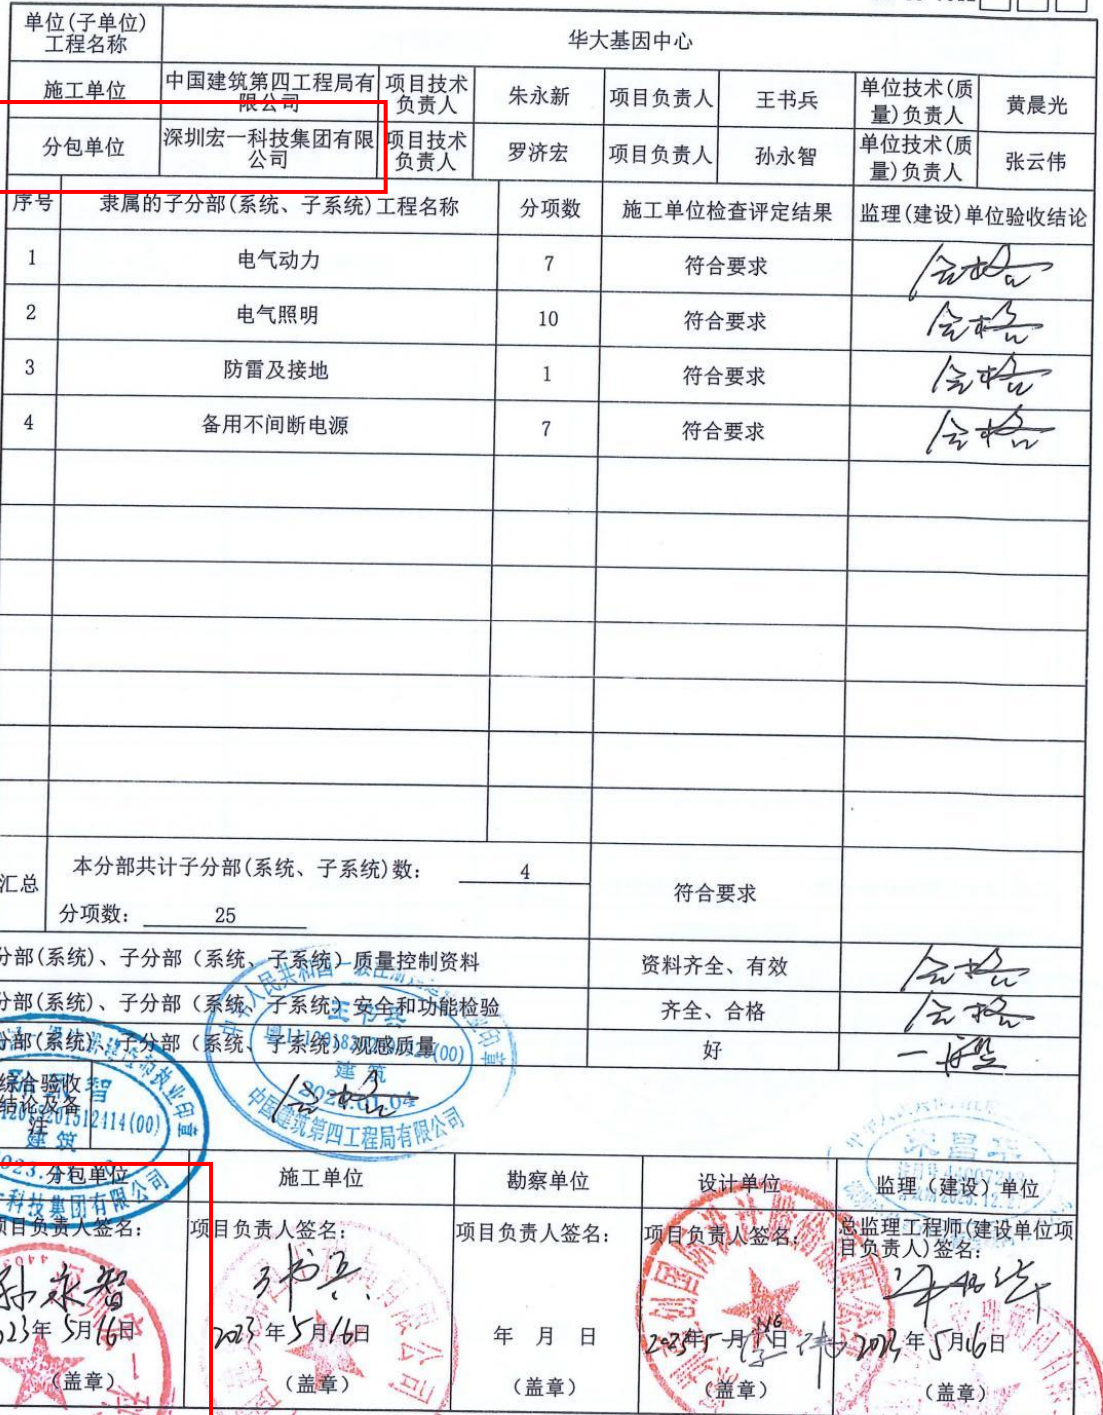 单位(子单位)
工程名称
华大基因中心
施工单位
中国建筑第四工程局有
限公司
项目技术
负责人
朱永新
项目负责人
王书兵
单位技术(质
量)负责人
黄晨光
分包单位
深圳宏一科技集团有限
公司
项目技术
负责人
罗济宏
项目负责人
孙永智
单位技术(质
量)负责人
张云伟
序号
隶属的子分部(系统、子系统)工程名称
分项数
施工单位检查评定结果
监理(建设)单位验收结论
1
电气动力
7
符合要求
合格
2
电气照明
10
符合要求
合格
3
防雷及接地
1
符合要求
合格
4
备用不间断电源
7
符合要求
合格
汇总
本分部共计子分部(系统、子系统)数: 4
分项数: 25
符合要求
分部(系统)、子分部（系统、子系统）质量控制资料
资料齐全、有效
合格
分部(系统)、子分部（系统、子系统）安全和功能检验
齐全、合格
合格
分部(系统)、子分部（系统、子系统）观感质量
好
一般
综合验收
结论及备
注
合格
建筑
中国建筑第四工程局有限公司
建筑
科技集团有限公司
分包单位
施工单位
勘察单位
设计单位
监理（建设）单位
项目负责人签名:
项目负责人签名:
项目负责人签名:
项目负责人签名:
总监理工程师(建设单位项
目负责人)签名:
孙永智
王书兵
023年5月16日
2023年5月16日
年 月 日
2023年5月16日
2023年5月16日
(盖章)
(盖章)
(盖章)
(盖章)
(盖章)